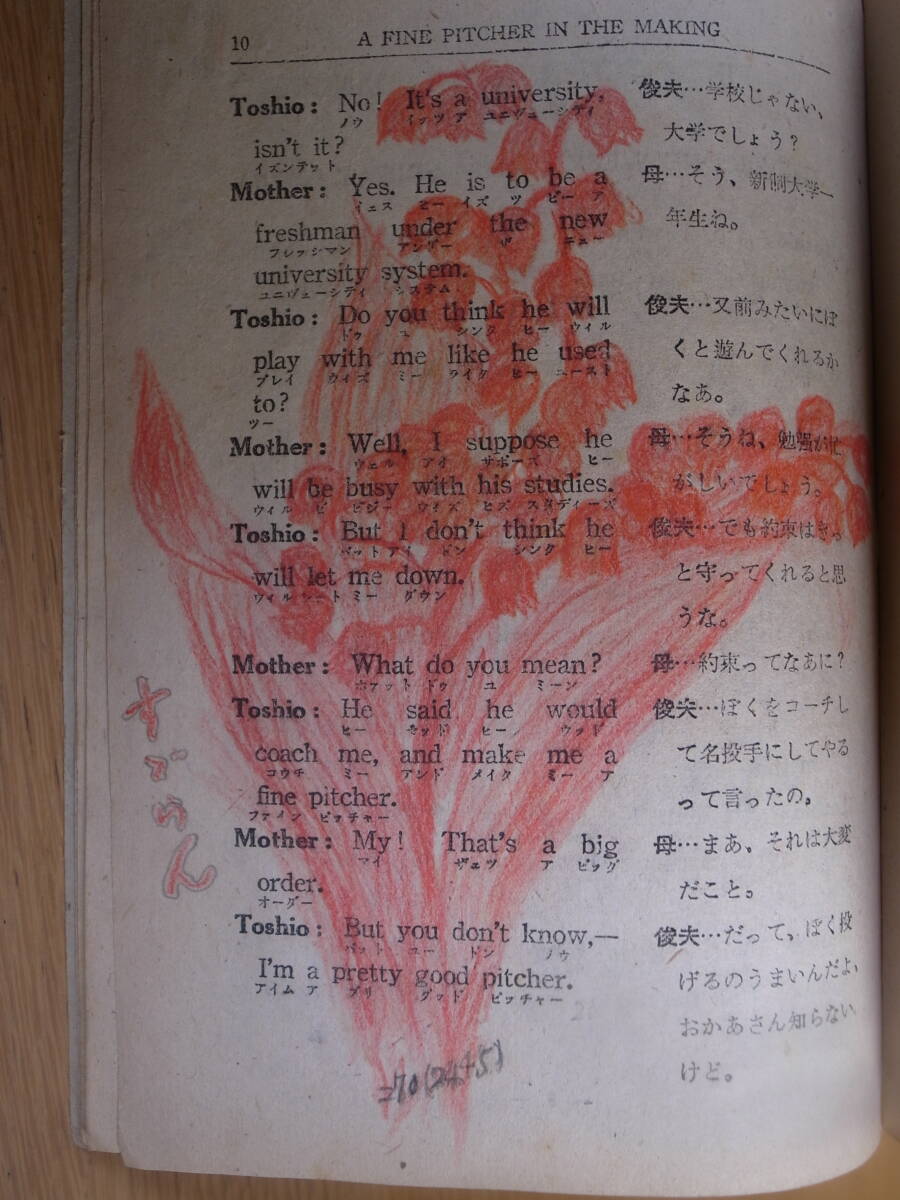 10 A FINE PITCHER IN THE MAKING
Toshio: No! It's a university,
ノウ イッツ ア ユニヴューシティ
isn't it?
イズンテット
Mother: Yes. He is to be a
イェス ヒー イズ ツ ビー ア
freshman under the new
フレッシマン アンダー ザ ニュー
university system.
ユニヴューシティ システム
Toshio: Do you think he will
ドゥ ユ シンク ヒー ウィル
play with me like he used
プレイ ウイズ ミー ライク ヒー ユースト
to?
ツー
Mother: Well, I suppose he
ウェル アイ サポーズ ヒー
will be busy with his studies.
ウィル ビ ビジー ウィズ ヒズ スタディーズ
Toshio: But I don't think he
バット アイ ドン シンク ヒー
will let me down.
ウィル レート ミー ダウン
Mother: What do you mean?
ホアット ドゥ ユ ミーン
Toshio: He said he would
ヒー セッド ヒー ウッド
coach me, and make me a
コウチ ミー アンド メイク ミー ア
fine pitcher.
ファイン ピッチャー
Mother: My! That's a big
マイ ザェツ ア ビッグ
order.
オーダー
Toshio: But you don't know,—
バット ユー ドン ノウ
I'm a pretty good pitcher.
アイム ア プリ グッド ピッチャー
俊夫…学校じゃない、
大学でしょう？
母…そう、新制大学一
年生ね。
俊夫…又前みたいにぼ
くと遊んでくれるか
なあ。
母…そうね、勉強が忙
がしいでしょう。
俊夫…でも約束はきっ
と守ってくれると思
うな。
母…約束ってなあに？
俊夫…ぼくをコーチし
て名投手にしてやる
って言ったの。
母…まあ、それは大変
だこと。
俊夫…だって、ぼく投
げるのうまいんだよ、
おかあさん知らない
けど。
すゞらん
=70(24+5)